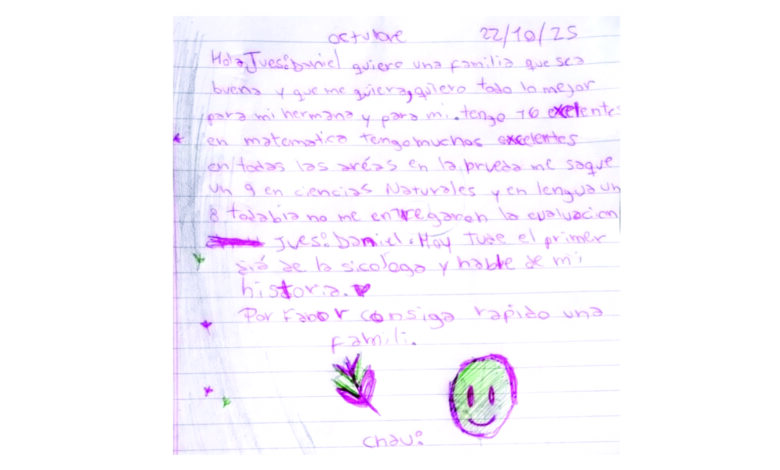 octubre 22/10/25
Hola Jues: Daniel quiero una familia que sea
buena y que me quiera, quiero todo lo mejor
para mi hermana y para mi. tengo 16 exelente
en matematica tengo muchos excelentes
en todas las aréas en la prueda me saque
un 9 en ciencias Naturales y en lengua un
8 todabia no me entregaron la evaluacion
Jues: Daniel. Hoy tube el primer
diá de la sicologa y hable de mi
historia.
Por Fabor consiga rapido una
Famili.
chau: